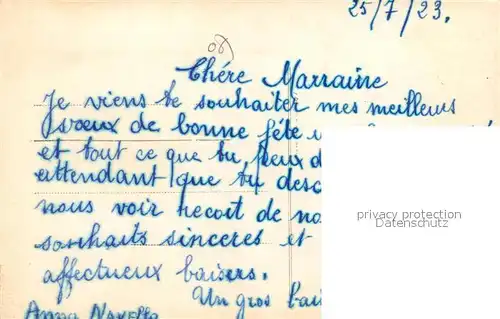 25/7/23.
Chére Marraine
Je viens te souhaiter mes meilleurs
voeux de bonne fête
et tout ce que tu peux d
attendant que tu desc
nous voir recoit de no
souhaits sinceres et
affectueux baisers.
Un gros bai
Anna
privacy protection
Datenschutz